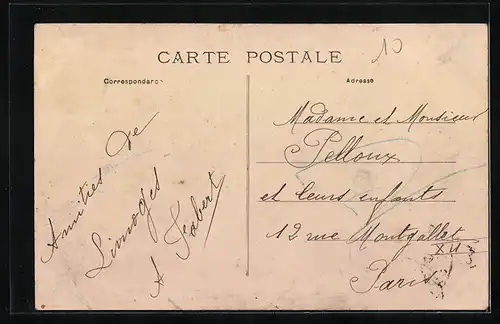 10
CARTE POSTALE
Correspondance
Adresse
Amitiés de
Limoges
A Fabert
Madame et Monsieur
Pelloux
et leurs enfants
12 rue Montgallet
XII
Paris